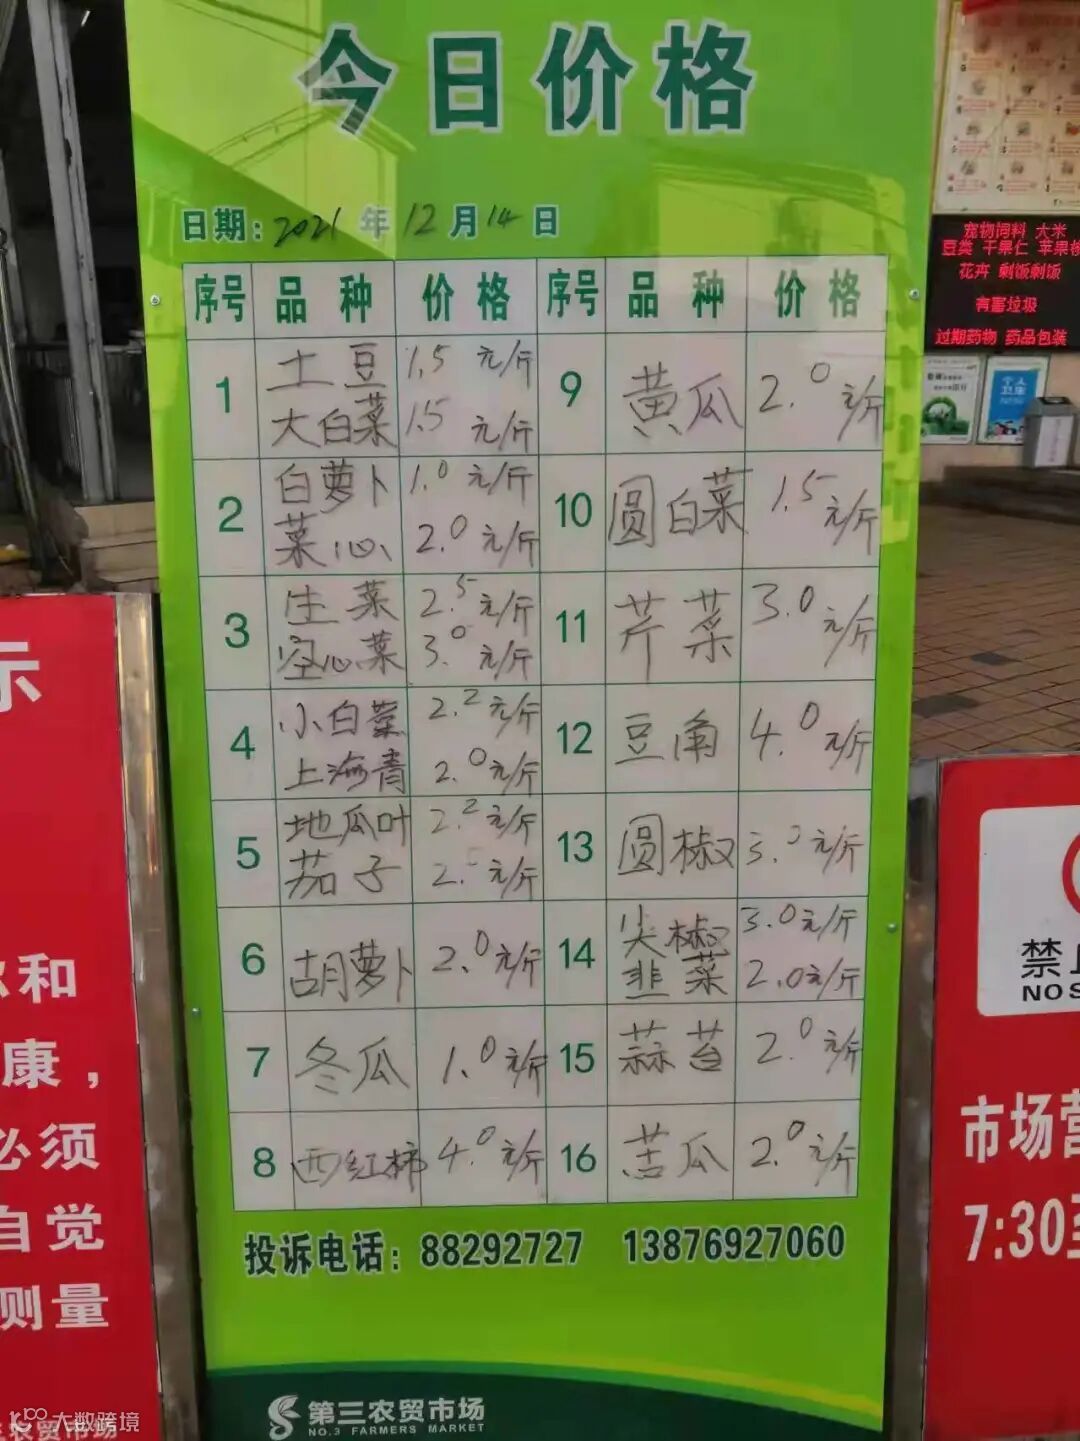 今日价格
日期: 2021 年 12 月 14 日
序号 品种 价格 序号 品种 价格
1 土豆 1.5 元/斤
大白菜 1.5 元/斤
9 黄瓜 2.0 元/斤
2 白萝卜 1.0 元/斤
菜心 2.0 元/斤
10 圆白菜 1.5 元/斤
3 生菜 2.5 元/斤
空心菜 3.0 元/斤
11 芹菜 3.0 元/斤
4 小白菜 2.2 元/斤
上海青 2.0 元/斤
12 豆角 4.0 元/斤
5 地瓜叶 2.2 元/斤
茄子 2.0 元/斤
13 圆椒 3.0 元/斤
6 胡萝卜 2.0 元/斤
14 尖椒 3.0 元/斤
韭菜 2.0 元/斤
7 冬瓜 1.0 元/斤
15 蒜苔 2.0 元/斤
8 西红柿 4.0 元/斤
16 苦瓜 2.0 元/斤
投诉电话: 88292727 13876927060
第三农贸市场
NO.3 FARMERS MARKET
宠物饲料 大米
豆类 干果仁 苹果核
花卉 剩饭剩饭
有害垃圾
过期药物 药品包装
个人
卫生
示
和
康,
必须
自觉
测量
农贸市场
禁
NO S
市场营
7:30至
大数跨境